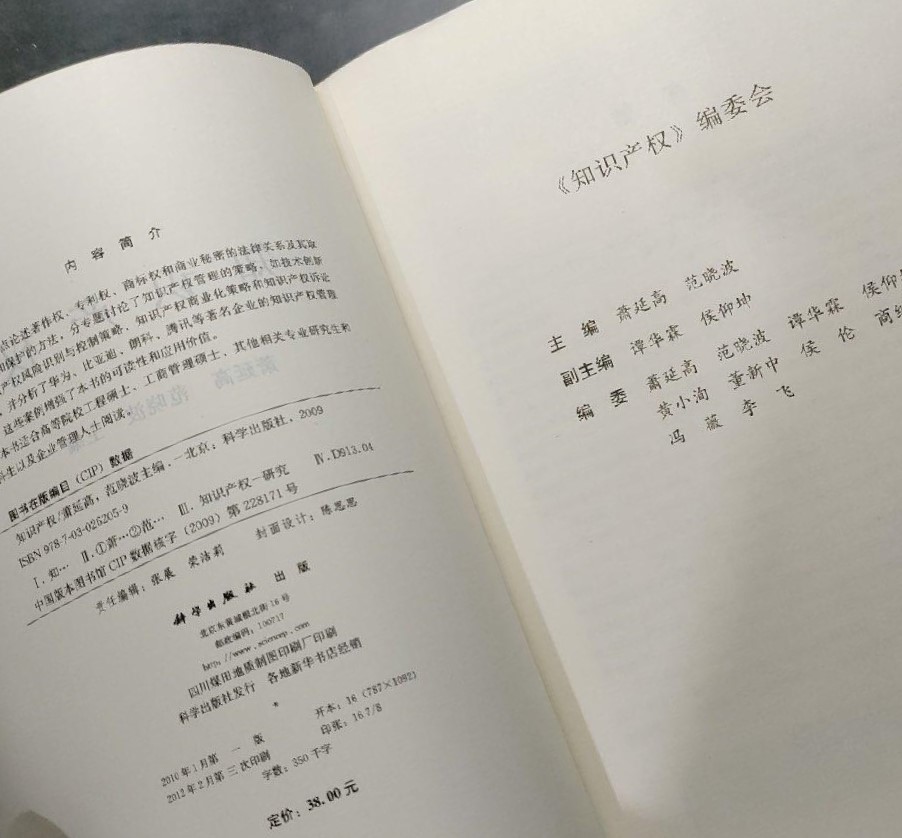 内容简介
点论述著作权、专利权、商标权和商业秘密的法律关系及其取
和保护的方法，分专题讨论了知识产权管理的策略，如技术创新
产权风险识别与控制策略、知识产权商业化策略和知识产权诉讼
，并分析了华为、比亚迪、朗科、腾讯等著名企业的知识产权管理
这些案例增强了本书的可读性和应用价值。
本书适合高等院校工程硕士、工商管理硕士、其他相关专业研究生和
科生以及企业管理人士阅读。
图书在版编目（CIP）数据
知识产权/萧延高，范晓波主编．—北京：科学出版社，2009
ISBN 978-7-03-026205-9
Ⅰ.知… Ⅱ.①萧…②范… Ⅲ.知识产权—研究 Ⅳ.D913.04
中国版本图书馆CIP数据核字（2009）第228171号
责任编辑：张展 莫洁莉 封面设计：陈思思
科学出版社 出版
北京东黄城根北街16号
邮政编码：100717
http://www.sciencep.com
四川煤田地质制图印刷厂印刷
科学出版社发行 各地新华书店经销
*
2010年1月第一版 开本：16（787×1092）
2012年2月第三次印刷 印张：16.7/8
字数：350千字
定价：38.00元
《知识产权》编委会
主编 萧延高 范晓波
副主编 谭华霖 侯仰坤
编委 萧延高 范晓波 谭华霖 侯仰坤
黄小洵 董新中 侯伦 商
冯薇 李飞